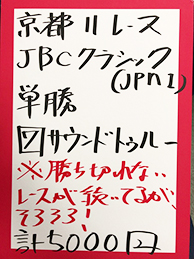 京都11レース
JBCクラシック
(JPn1)
単勝
7サウンドトゥルー
※勝ち切れない
レースが続いてるが、
そろそろ!
計5000円